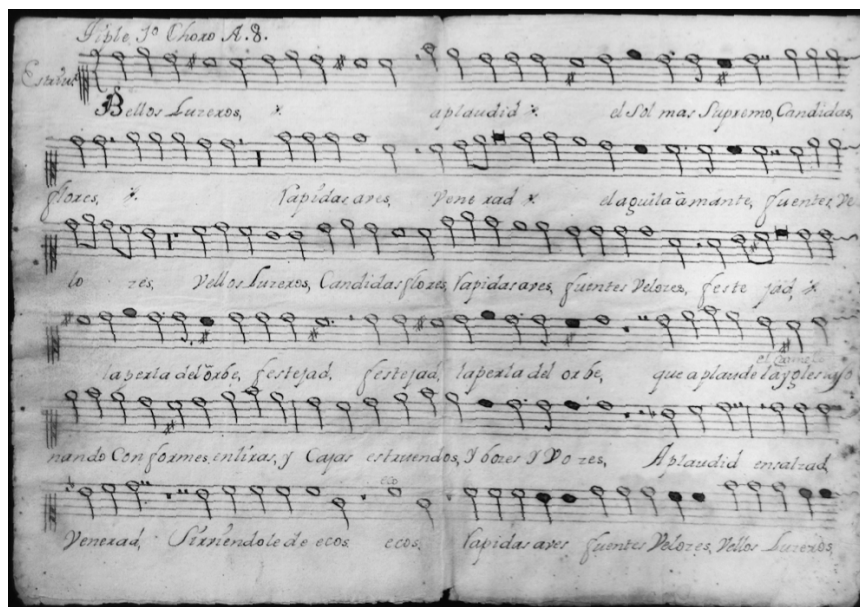 Tiple 1º Choro A. 8.
Bellos Luzeros, aplaudid el Sol mas Supremo, Candidas,
flores, rapidas ares, Venerad el aguila amante, fuentes, Ve
lo zes, Vellos Luzeros, Candidas flores, rapidas ares, fuentes Velozes, feste jad,
la perla del orbe, festejad, festejad, la perla del orbe, que aplaude la yglesia
el Carmelo
nando Con formes, en liras, y Cajas estruendos, y bozes y Vo zes, Aplaudid ensalzad
eco
Venerad, Sirviendole de ecos ecos, rapidas ares fuentes Velozes, Vellos Luzeros,